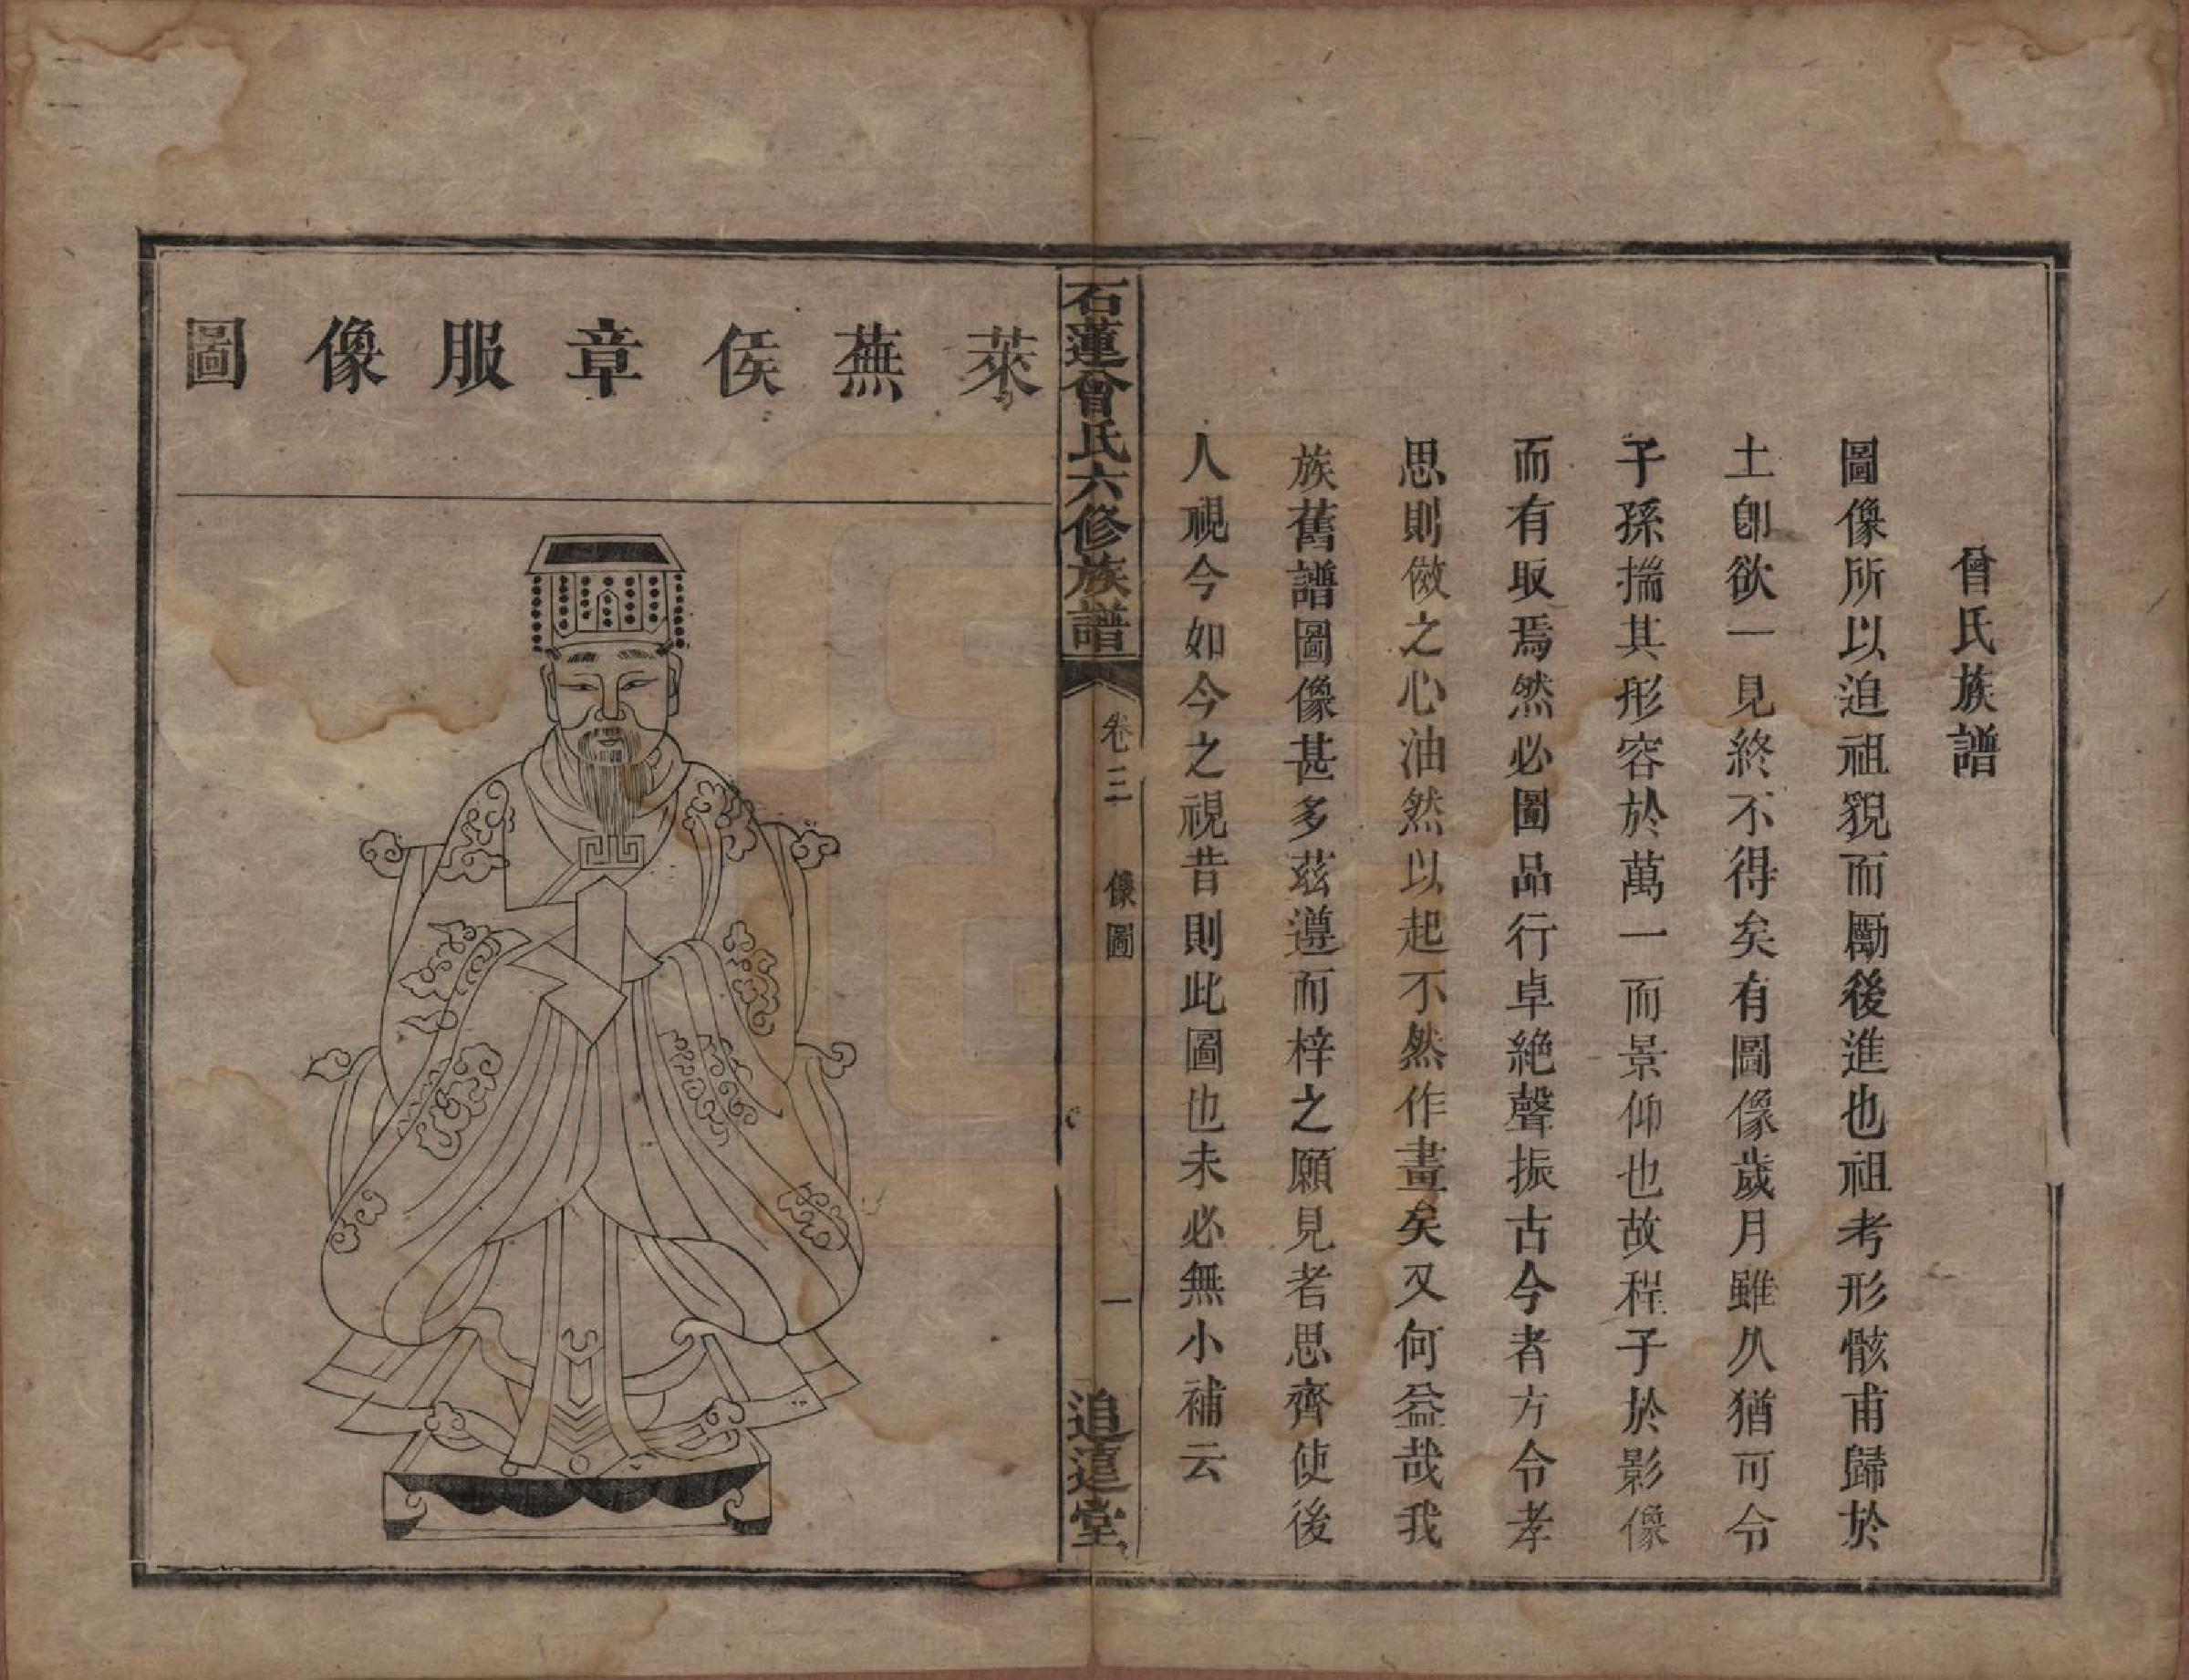 曾氏族譜
圖像所以追祖貌而勵後進也祖考形骸甫歸於
土卽欲一見終不得矣有圖像歲月雖久猶可令
子孫揣其形容於萬一而景仰也故程子於影像
而有取焉然必圖品行卓絶聲振古今者方令孝
思則傚之心油然以起不然作畫矣又何益哉我
族舊譜圖像甚多茲遵而梓之願見者思齊使後
人視今如今之視昔則此圖也未必無小補云
石蓮曾氏六修族譜
卷三
像圖
一
追遠堂
萊蕪侯章服像圖